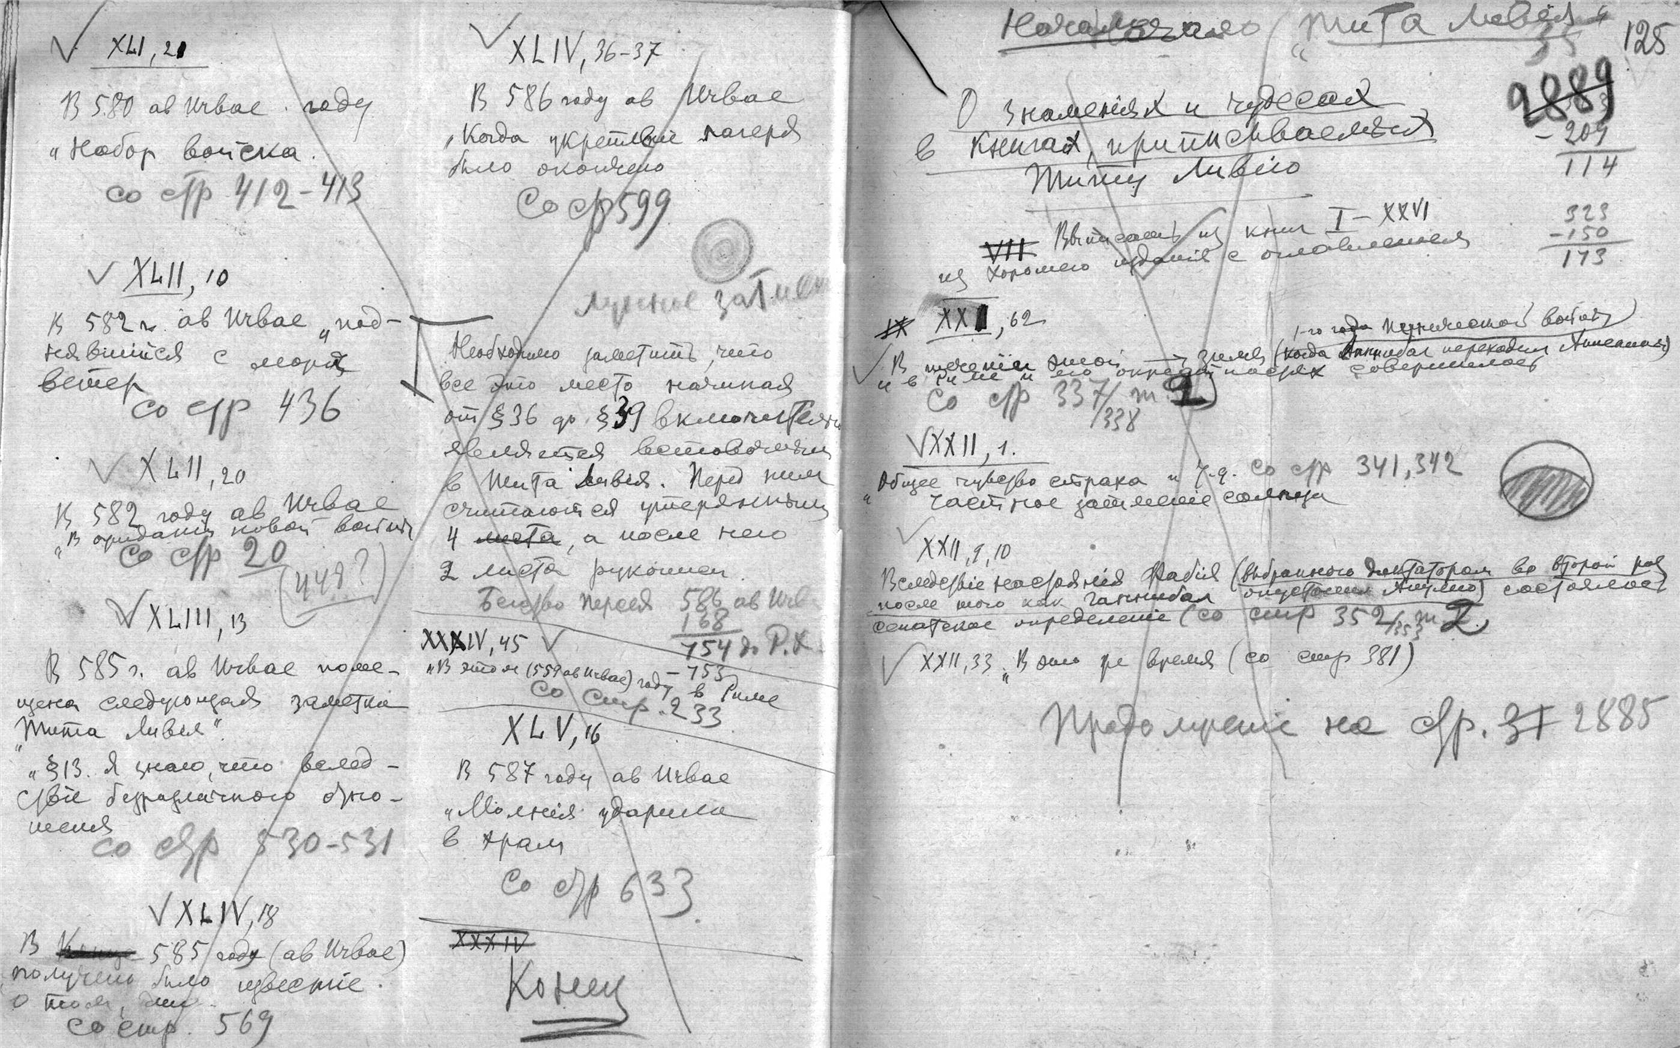 XLI, 21
В 580 ab Urbae году
„Набор войска.
со стр 412-413
XLII, 10
В 582 г. ab Urbae „под-
нявшийся с моря
ветер
со стр 436
XLII, 20
В 582 году ab Urbae
„В ожидании новой войны
Со стр 20
(448?)
XLIII, 13
В 585 г. ab Urbae поме-
щена следующая заметка
„Тита Ливия".
„§13. Я знаю, что вслед-
ствіе безразличного отно-
шения
со стр 530-531
XLIV, 18
В 585 году (ab Urbae)
получено было известіе.
о том, что
со стр. 569
XLIV, 36-37
В 586 году ab Urbae
„Когда укрепленіе лагеря
было окончено
Со стр 599
лунное затмен
Необходимо заметить, что
все это место начиная
от §36 до §39 включительно
является вставочным
в Тита Ливия. Перед ним
считаются утерянными
4 листа, а после него
2 листа рукописи.
Бегство Персея 586 ab Urb
168
754 до Р.Х.
XXXIV, 45
-753
„В этом (559 ab Urbae) году в Риме
Со стр. 233
XLV, 16
В 587 году ab Urbae
„Молнія ударила
в храм
Со стр 633
XXXIV
Конец
Начало „Тита Ливия"
35
125
2889
О знаменіях и чудесах
- 209
в книгах, приписываемых
114
Титу Ливію
323
VII Выписать из книг I - XXVI
-150
из хорошего изданія с оглавленіем
173
IX XXI, 62
1-го года Пунической войны
В теченіи этой зимы (когда Аннибал переходил Апеннины)
и в Риме и его окрестностях совершилось
Со стр 337/338 т. 2)
XXII, 1.
„Общее чувство страха и т.д. со стр 341, 342
частное затменіе солнца
XXII, 9, 10
Вследствіе настоянія Фабія (выбранного диктатором во второй раз
после того как Ганнибал опустошил Апулию) состоялось
сенатское определеніе (со стр 352/353 т 2)
XXII, 33 „В это же время (со стр 381)
Продолженіе на стр. 37 2885